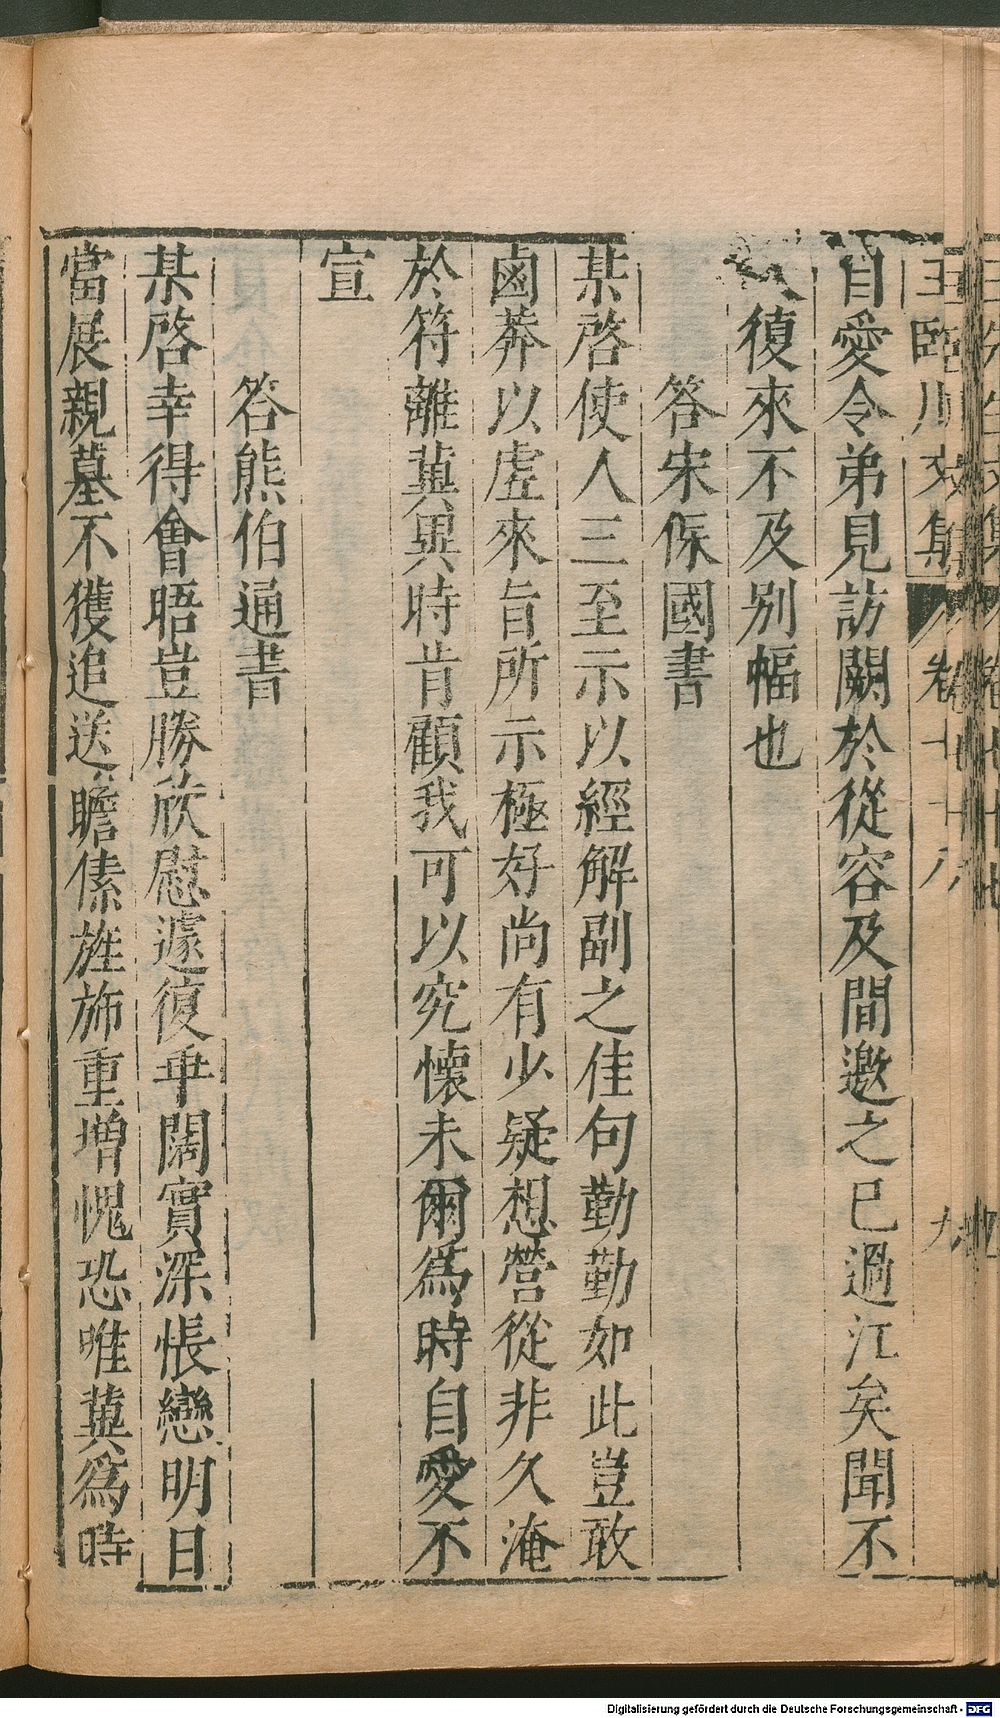 王臨川文集 卷七十八 九
自愛令弟見訪闕於從容及間邀之已過江矣聞不
久復來不及别幅也
答宋保國書
某啓使人三至示以經解副之佳句勤勤如此豈敢
鹵莽以虚來旨所示極好尚有少疑想營從非久淹
於符離兾異時肯顧我可以究懷未爾爲時自愛不
宣
答熊伯通書
某啓幸得會晤豈勝欣慰遽復乖闊實深悵戀明日
當展親墓不獲追送瞻傃旌斾重增愧恐唯兾爲時
Digitalisierung gefördert durch die Deutsche Forschungsgemeinschaft - DFG